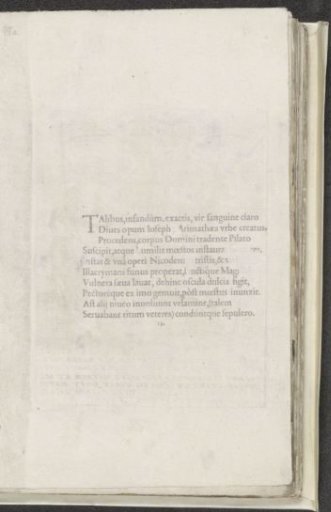 TAlibus, infandùm, exactis, vir sanguine claro
Diues opum Ioseph Arimathæa vrbe creatus,
Proculens, corpus Domini tradente Pilato
Suscipit, atque humili mœstos instaurat
Instat & vnà operi Nicodem tristis, & ex
Illacrymans funus properat, Magi
Vulnera læta lauat, dehinc oscula dulcia figit,
Pectusque ex imo gemuit, pòst mœstus inunxit.
Ast alij niueo inuoluunt velamine, (talem
Seruabant ritum veteres) conduntque sepulcro.